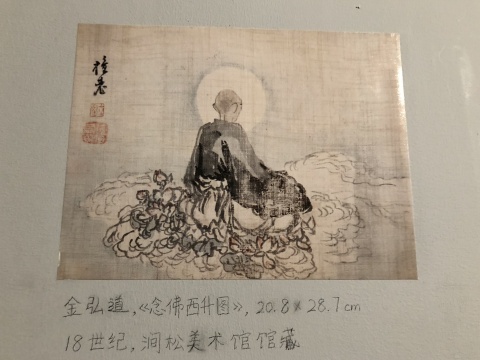 檀老
金弘道,《念佛西升图》, 20.8×28.7cm
18世纪, 涧松美术馆馆藏